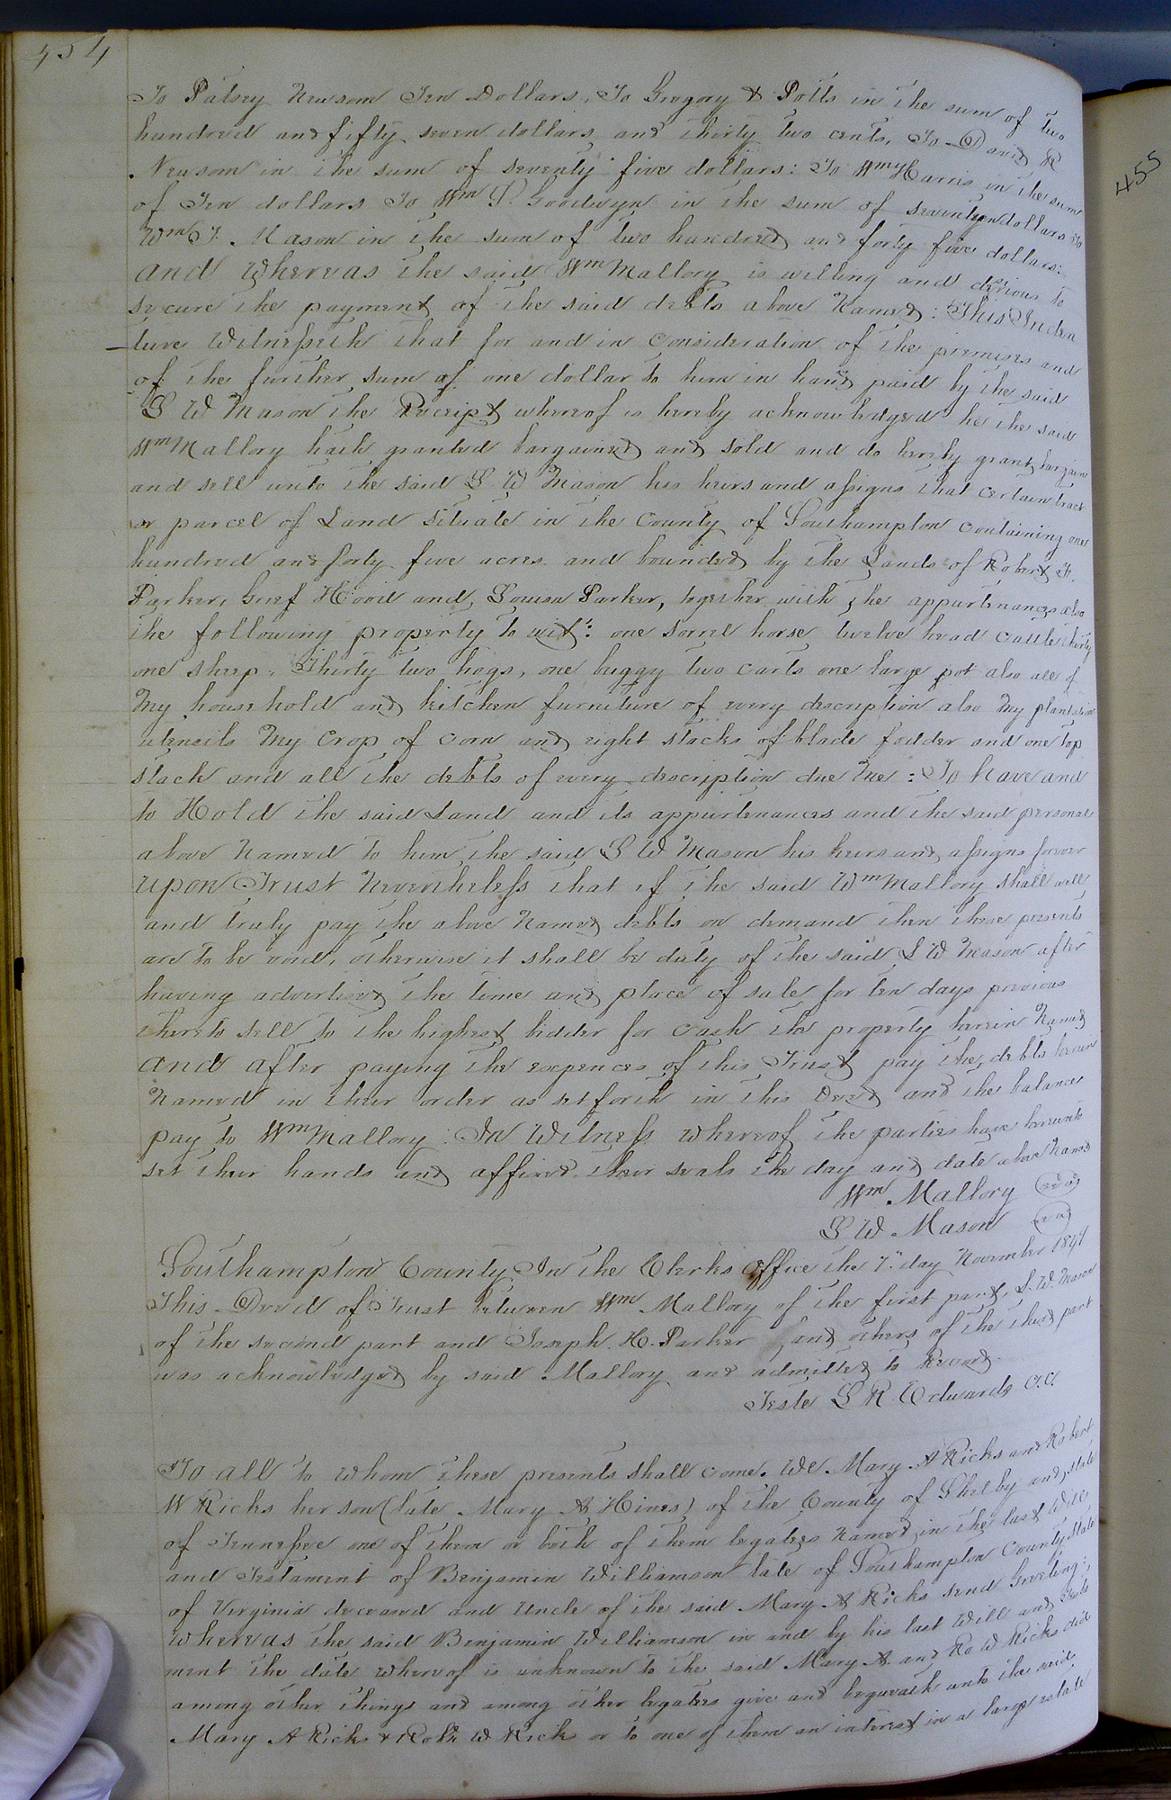 454
To Patsey Newsom Ten Dollars. To Gregory & Potts in the sum of two
hundred and fifty seven dollars and thirty two cents, To David R
Newsom in the sum of seventy five dollars: To Wm Harris in the sum
of Ten dollars To Wm S. Goodwyn in the sum of seventeen dollars to
Wm T. Mason in the sum of two hundred and forty five dollars:
and Whereas the said Wm Mallory is willing and desirous to
secure the payment of the said debts above Named: This Inden
ture Witnesseth that for and in consideration of the premises and
of the further sum of one dollar to him in hand paid by the said
L W Mason the Receipt whereof is hereby acknowledged he the said
Wm Mallory hath granted bargained and sold and do hereby grant, bargain
and sell unto the said L W Mason his heirs and assigns that certain tract
or parcel of Land Situate in the County of Southampton containing one
hundred and forty five acres and bounded by the Lands of Robert
Parker, Greif Hood and Louisa Parker, together with the appurtenances also
the following property to wit: one Sorrel horse twelve head cattle thirty
one sheep, Thirty two hogs, one buggy two carts one large pot also all of
My household and kitchen furniture of every description also My plantation
utensils My Crop of corn and eight stacks of blade fodder and one top
stack and all the debts of every description due Me: To have and
to Hold the said Land and its appurtenances and the said personal
above Named to him the said L W Mason his heirs and assigns forever
upon Trust Nevertheless that if the said Wm Mallory shall well
and truly pay the above Named debts on demand then these presents
are to be void, otherwise it shall be duty of the said L W Mason after
having advertised the time and place of sale for ten days previous
thereto sell to the highest bidder for cash the property herein Named
and after paying the expences of this Trust pay the debts herein
Named in their order as set forth in this Deed and the balance
pay to Wm Mallory: In Witness whereof the parties have hereunto
set their hands and affixed their seals the day and date above Named
Wm Mallory (seal)
L W Mason (seal)
Southampton County In the Clerks office the 7th day November 1847
This Deed of Trust between Wm Mallory of the first part, L. W. Mason
of the second part and Joseph H. Parker and others of the third part
was acknowledged by said Mallory and admitted to Record.
Teste L R Edwards C.C.
To all to whom these presents shall come. We Mary A Ricks and Robert
W Ricks her son (late Mary A Hines) of the County of Shelby and State
of Tennessee one of them or both of them legatees Named in the last Will
and Testament of Benjamin Williamson late of Southampton County State
of Virginia deceased and Uncle of the said Mary A Ricks Send Greeting:
Whereas the said Benjamin Williamson in and by his last Will and Testa
ment the date whereof is unknown to the said Mary A. and Ro W Ricks did
among other things and among other legatees give and bequeath unto the said
Mary A Ricks & Robt W Ricks or to one of them an interest in a large estate
455